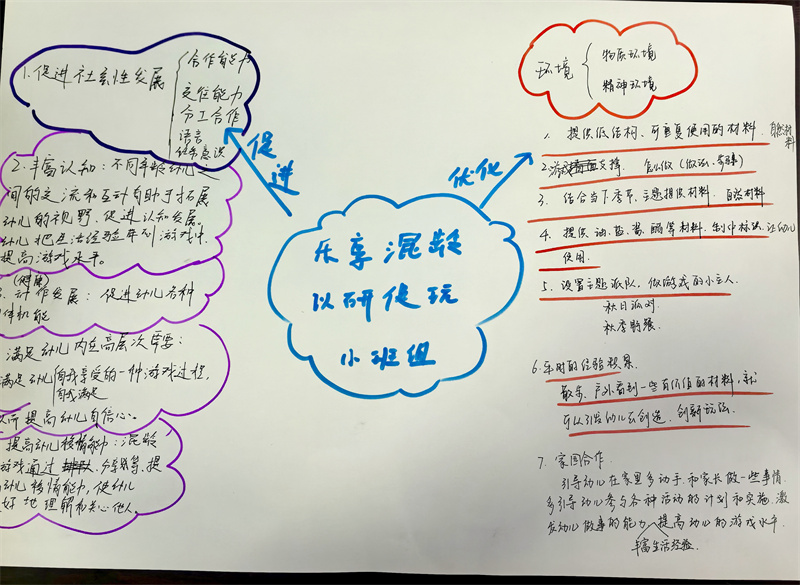 乐享混龄
以研促玩
小班组
促进
优化
1.促进社会性发展
合作能力
交往能力
分工合作
语言
任务意识
2.丰富认知:不同年龄幼儿之
间的交流和互动有助于拓展
幼儿的视野,促进认知发展。
幼儿把生活经验带到游戏中,
提高游戏水平。
(健康)
动作发展:促进幼儿各种
体机能
满足幼儿内在高层次需要:
满足幼儿自我享受的一种游戏过程,
自我满足
提高幼儿自信心。
提高幼儿移情能力:混龄
游戏通过 分享等,提
幼儿移情能力,使幼儿
好地理解和关心他人。
环境
物质环境
精神环境
1、提供低结构、可重复使用的材料.
自然材料
2.游戏 支撑.
3、结合当下季节、主题提供材料.自然材料
4、提供油、盐、酱、醋等材料.制作标识.让幼儿
使用.
5、设置主题派队,做游戏的小主人.
秋日派对
秋季野餐.
6.平时的经验积累.
散步、户外看到一些有价值的材料,就
可以引发幼儿去创造、创新玩法.
7、家园合作.
引导幼儿在家里多动手.和家长做一些事情.
多引导幼儿参与各种活动的计划和实施.激
发幼儿做事的能力 提高幼儿的游戏水平.
丰富生活经验.